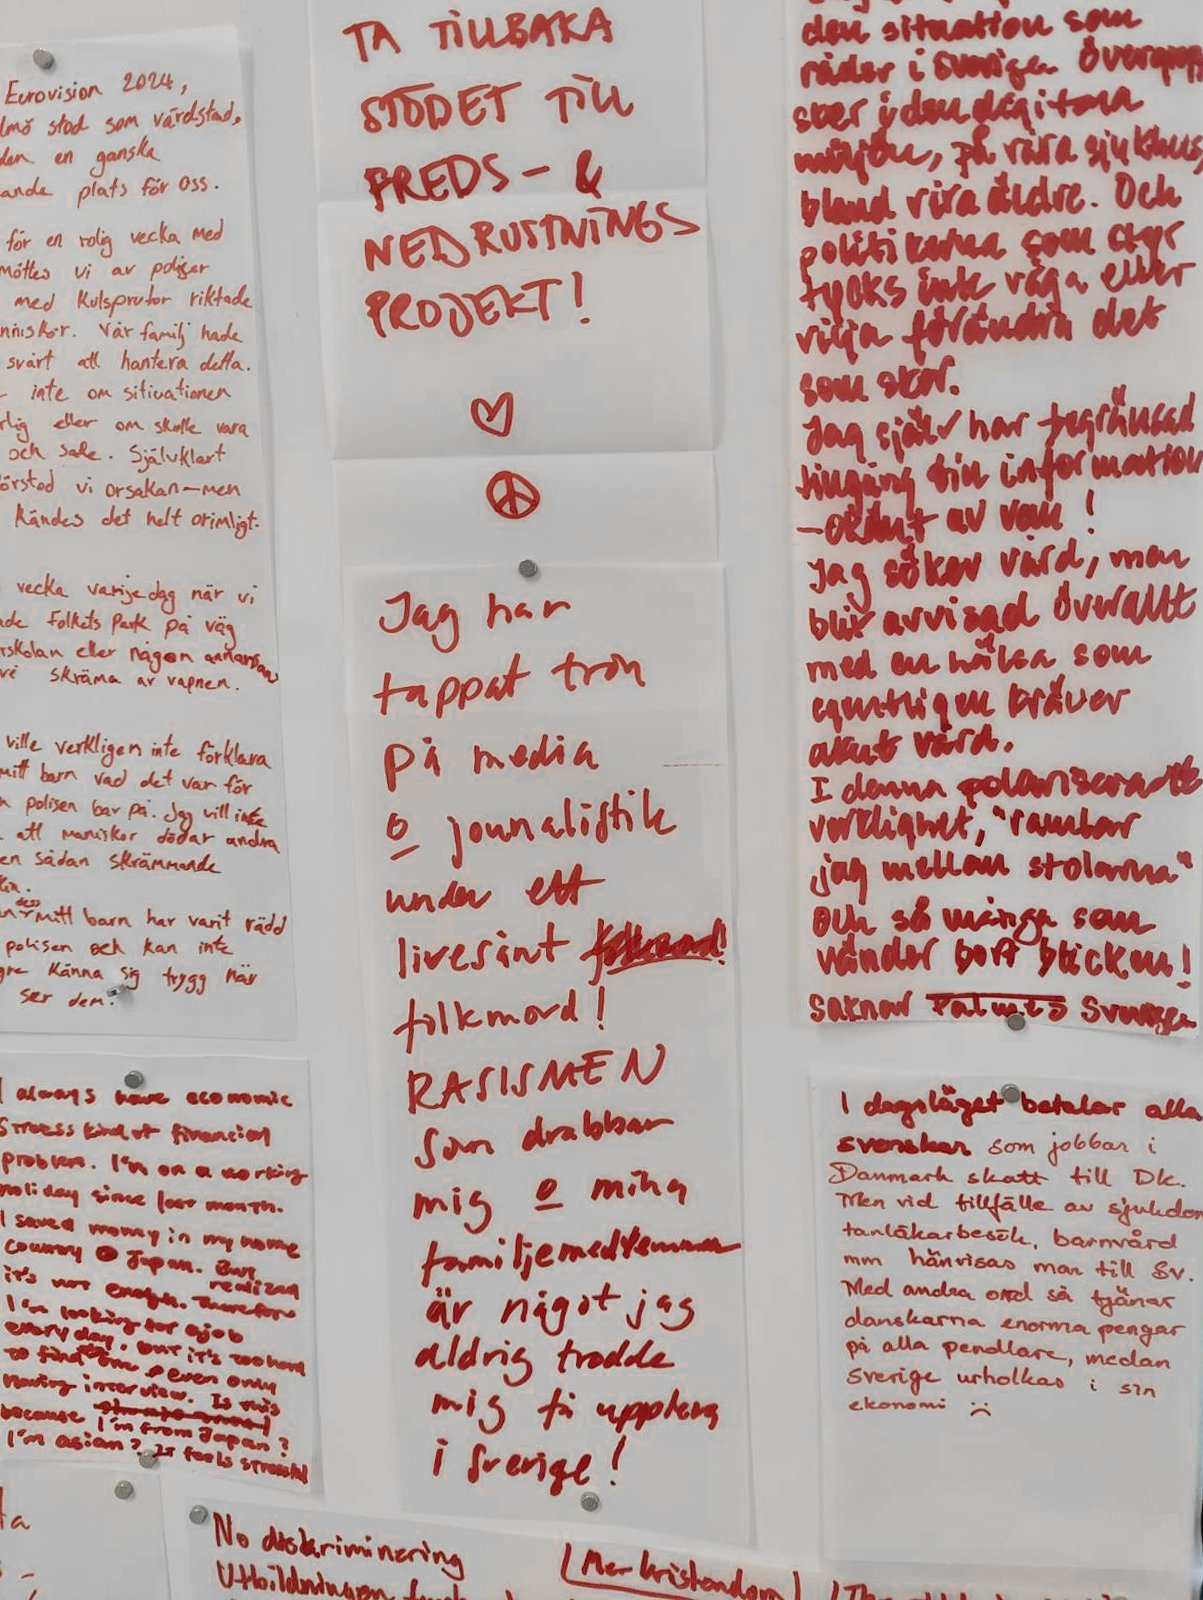 Eurovision 2024,
lmö stod som värdstad,
den en ganska
ande plats för oss.
för en rolig vecka med
möttes vi av poliser
med kulsprutor riktade
nniskor. Vår familj hade
svårt att hantera detta.
inte om sitiuationen
rlig eller om skulle vara
och safe. Självklart
örstod vi orsakan—men
kändes det helt orimligt.
vecka varje dag när vi
de Folkets Park på väg
rskolan eller någon annanstans
vi skräma av vapnen.
ville verkligen inte förklara
mitt barn vad det var för
polisen bar på. Jag vill inte
att maniskor dödar andra
en sådan skrämmande
dess
mitt barn har varit rädd
polisen och kan inte
gre känna sig trygg när
ser dem.
I always have economic
stress kind of financial
problem. I'm on a working
holiday since last month.
I saved money in my home
country Japan. But
realized
it's not enough. Therefore
I'm looking for a job
every day, but it's too hard
to find one even only
having interview. Is this
because
I'm from Japan?
I'm asian? It feels stressful
TA TILLBAKA
STÖDET TILL
FREDS- &
NEDRUSTNINGS
PROJEKT!
Jag har
tappat tron
på media
o journalistik
under ett
livesänt
folkmord!
RASISMEN
som drabbar
mig o mina
familjemedlemmar
är något jag
aldrig trodde
mig få uppleva
i Sverige!
den situation som
råder i Sverige. Övergrepp
sker i den digitala
miljön, på våra sjukhus,
bland våra äldre. Och
politikerna som styr
tycks inte våga eller
vilja förändra det
som sker.
Jag själv har begränsad
tillgång till information
– okänt av vem!
Jag söker vård, men
blir avvisad överallt
med en hälsa som
egentligen kräver
akut vård.
I denna polariserade
verklighet, "ramlar
jag mellan stolarna"
och så många som
vänder bort blicken!
saknar Palmes Sverige
I dagsläget betalar alla
svenskar som jobbar i
Danmark skatt till Dk.
Men vid tillfälle av sjukdom
tanläkarbesök, barnvård
mm hänvisas man till Sv.
Med andra ord så tjänar
danskarna enorma pengar
på alla pendlare, medan
Sverige urholkas i sin
ekonomi
ta
No diskriminering
Utbildningen
Mer kristendom